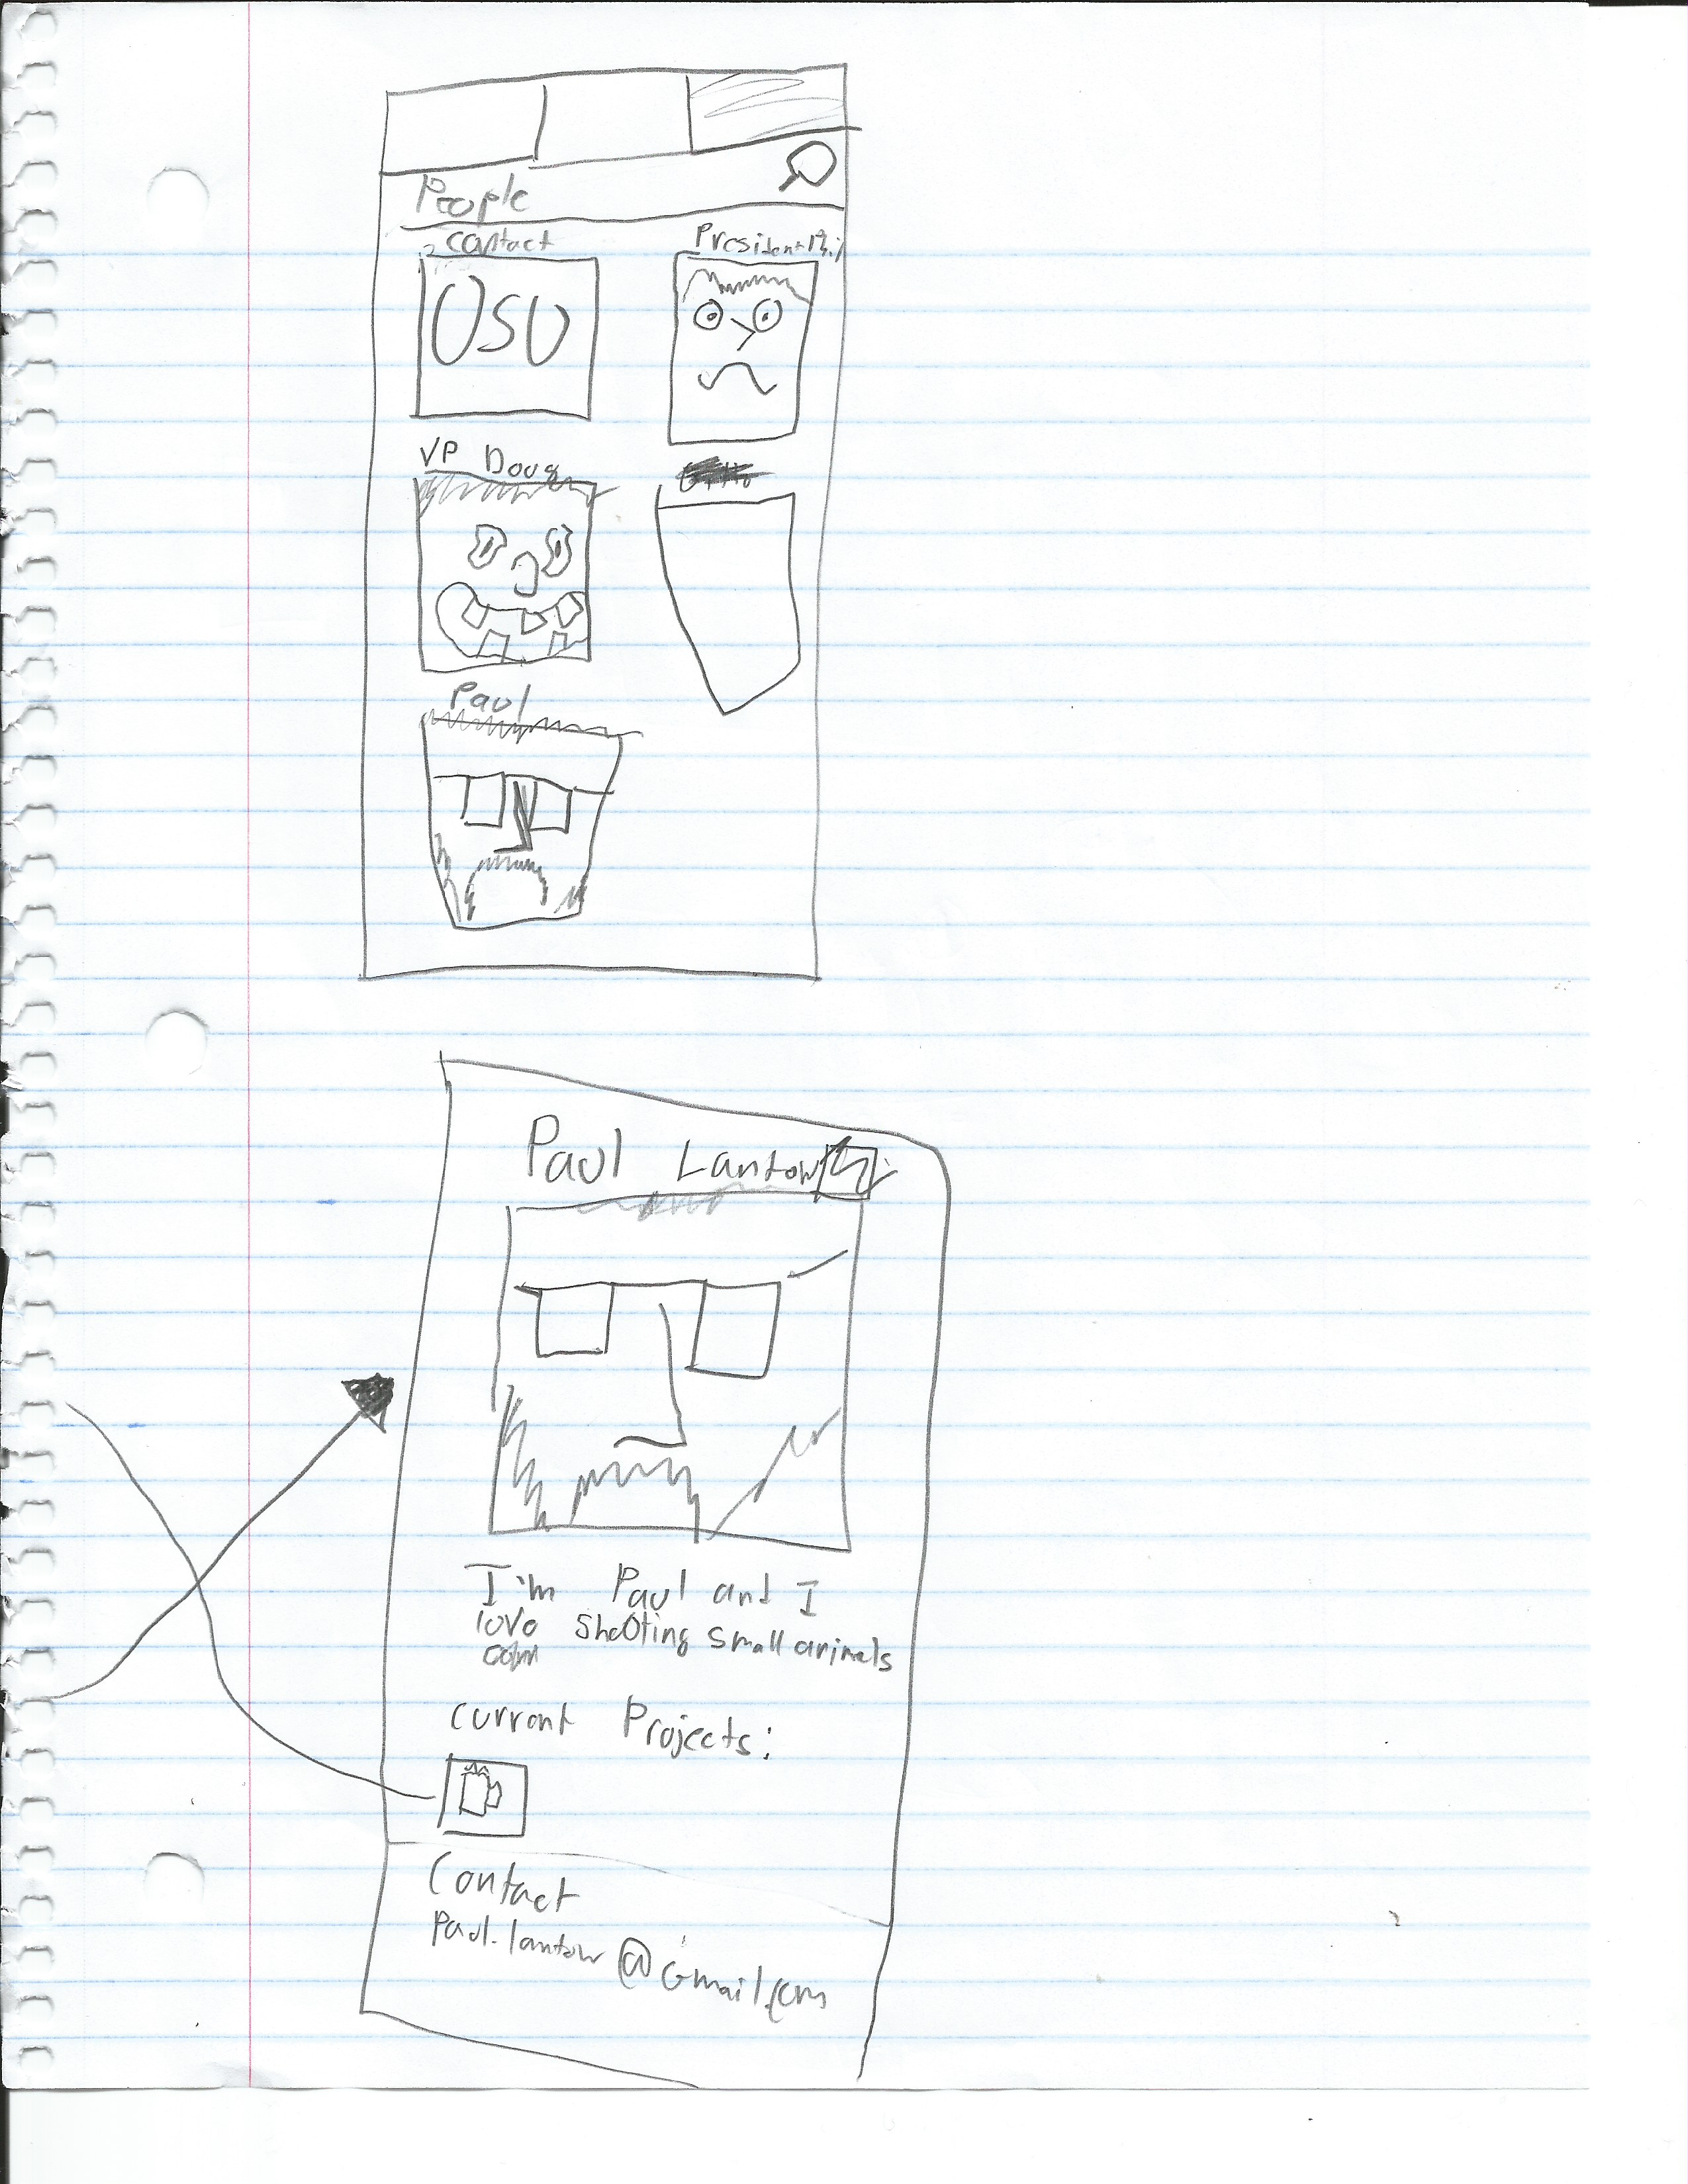 People
contact
President Phil
OSU
VP Doug
Paul
Paul Lantow
I'm Paul and I
love shooting small animals
current Projects:
Contact
Paul.lantow@Gmail.com